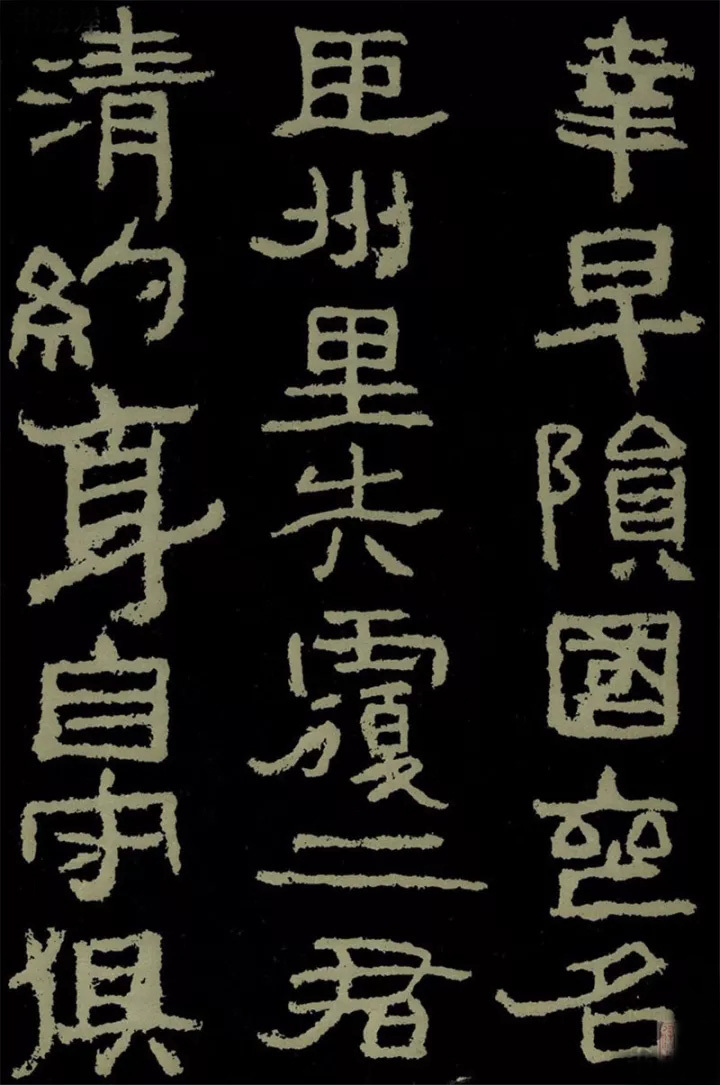 幸早隕國喪名
臣州里失覆二君
清約身自守俱